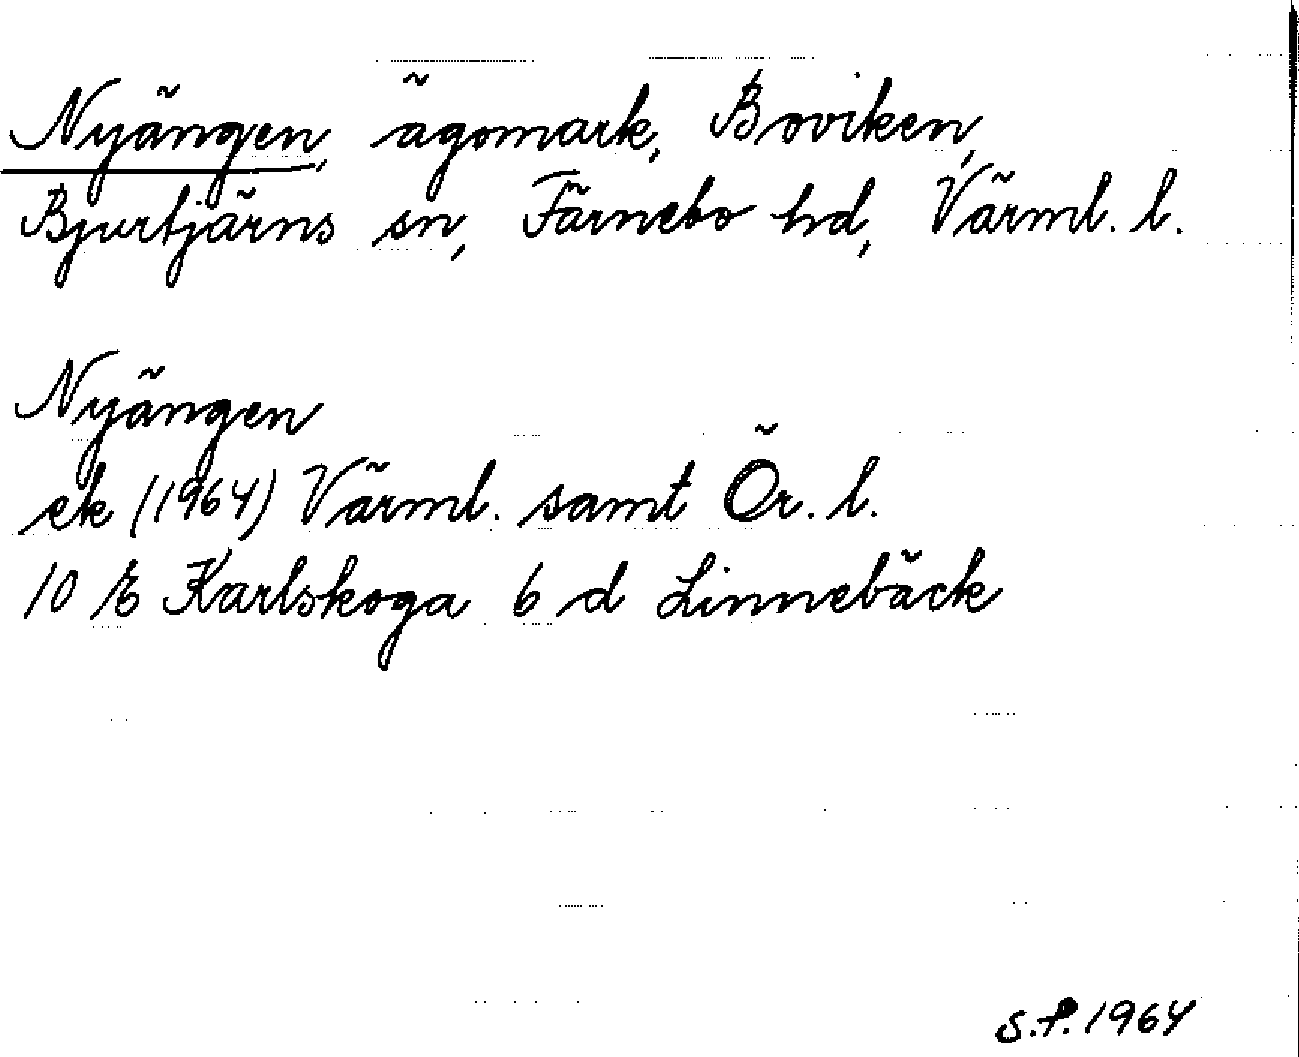 Nyängen, ägomark, Boviken,
Bjurtjärns sn, Färnebo hd, Värml. l.
Nyängen
ek (1964) Värml. samt Ör. l.
10 E Karlskoga 6 d Linnebäck
S.P. 1964